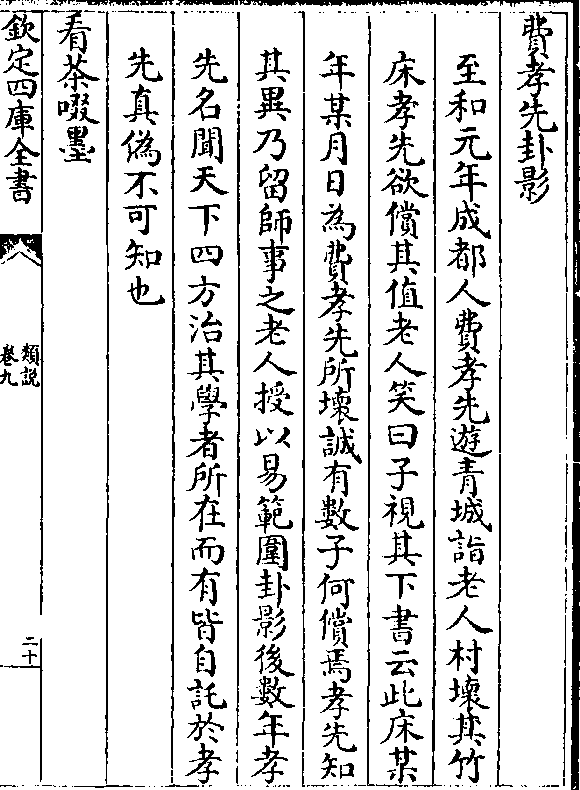 費孝先卦影
至和元年成都人費孝先遊青城詣老人村壞其竹
床孝先欲償其值老人笑曰子視其下書云此床某
年某月日為費孝先所壞誠有數子何償焉孝先知
其異乃留師事之老人授以易範圍卦影後數年孝
先名聞天下四方治其學者所在而有皆自託於孝
先真偽不可知也
看茶啜墨
欽定四庫全書
類說
卷九
二十